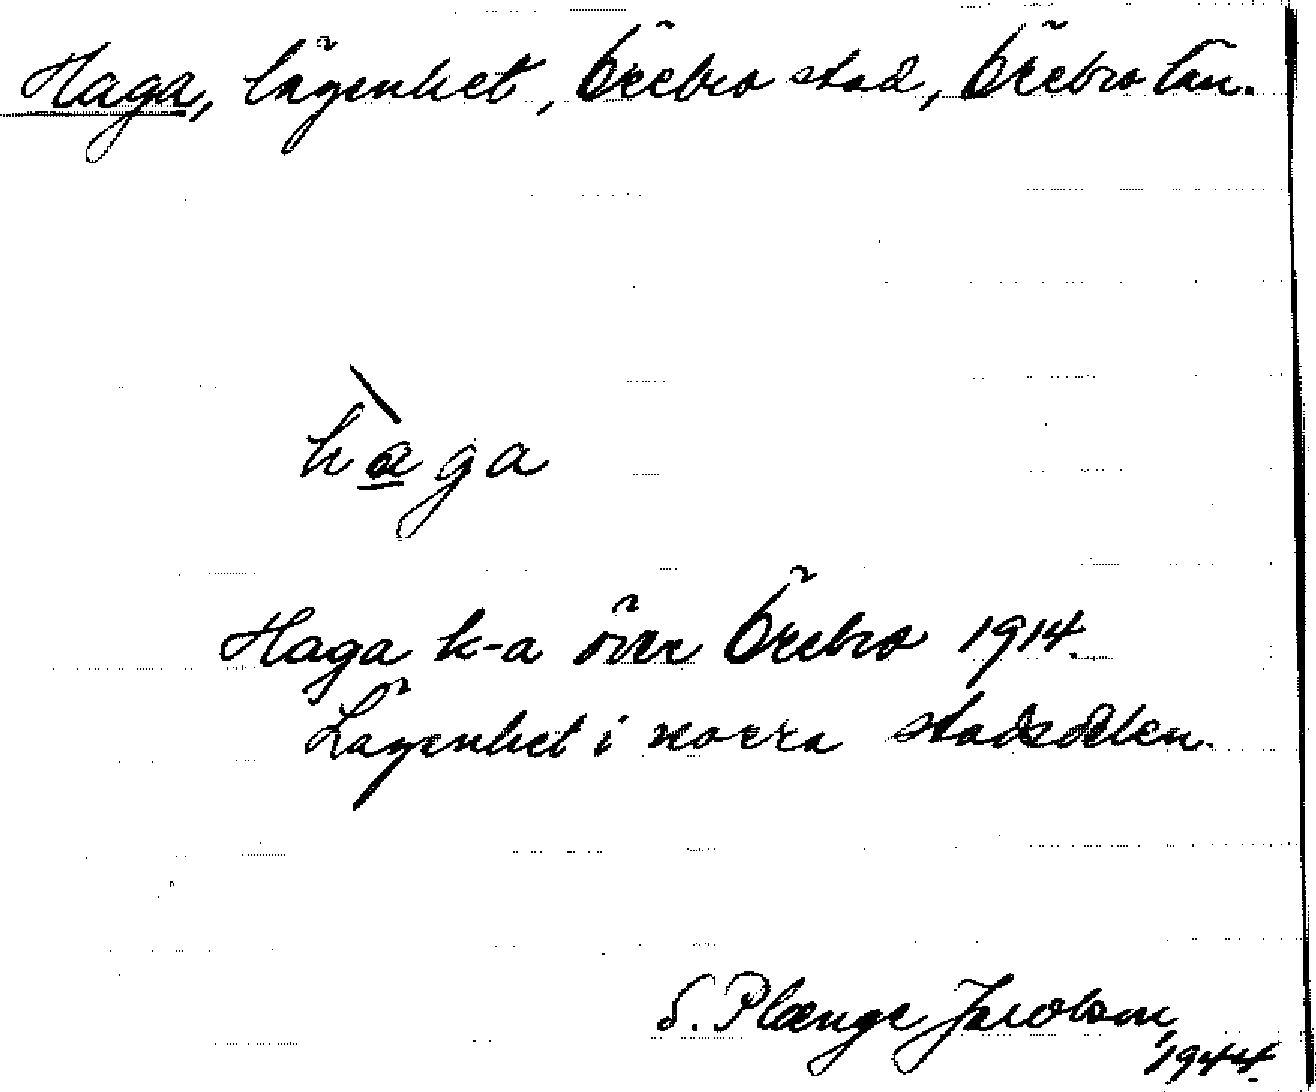 Haga, lägenhet, Örebro stad, Örebro län.
haga
Haga k-a över Örebro 1914.
Lägenhet i norra stadsdelen.
S. Plænge Jacobson
1944.